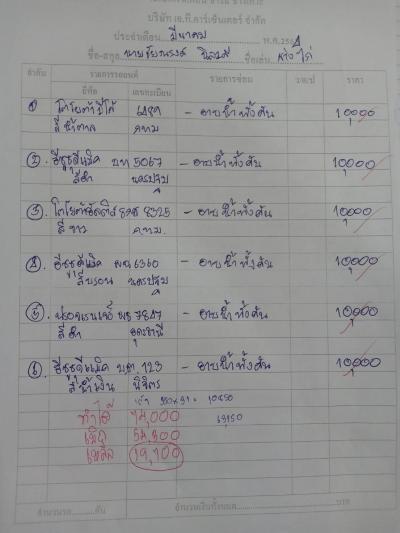 บริษัท เอ.ที.คาร์เซ็นเตอร์ จำกัด
ประจำเดือน มีนาคม พ.ศ.256
ชื่อ-สกุล ชื่อเล่น
ลำดับ รายการรถยนต์ รายการซ่อม ราคา
ยี่ห้อ เลขทะเบียน
① โตโยต้าวีโก้ 6489 - อาบน้ำทั้งคัน 10,000
สีน้ำตาล กทม
②. อีซูซุดีแม็ค บท 5067 - อาบน้ำทั้งคัน 10,000
สีดำ นครปฐม
③. โตโยต้าอัลติส 8325 - อาบน้ำทั้งคัน 10,000
สีขาว กทม.
④. อีซูซุดีแม็ค ผฉ 6360 - อาบน้ำทั้งคัน 10,000
สีบรอน นครปฐม
⑤. ฟอจูนเนอร์ 7847 - อาบน้ำทั้งคัน 10,000
สีดำ อุดรธานี
⑥. อีซูซุดีแม็ค บต. 123 - อาบน้ำทั้งคัน 10,000
สีน้ำเงิน พิจิตร
350x31 = 10850
ทำได้ 74,000
เบิก 54,900
เหลือ 19,100
จำนวนรถ คัน จำนวนเงินทั้งหมด บาท